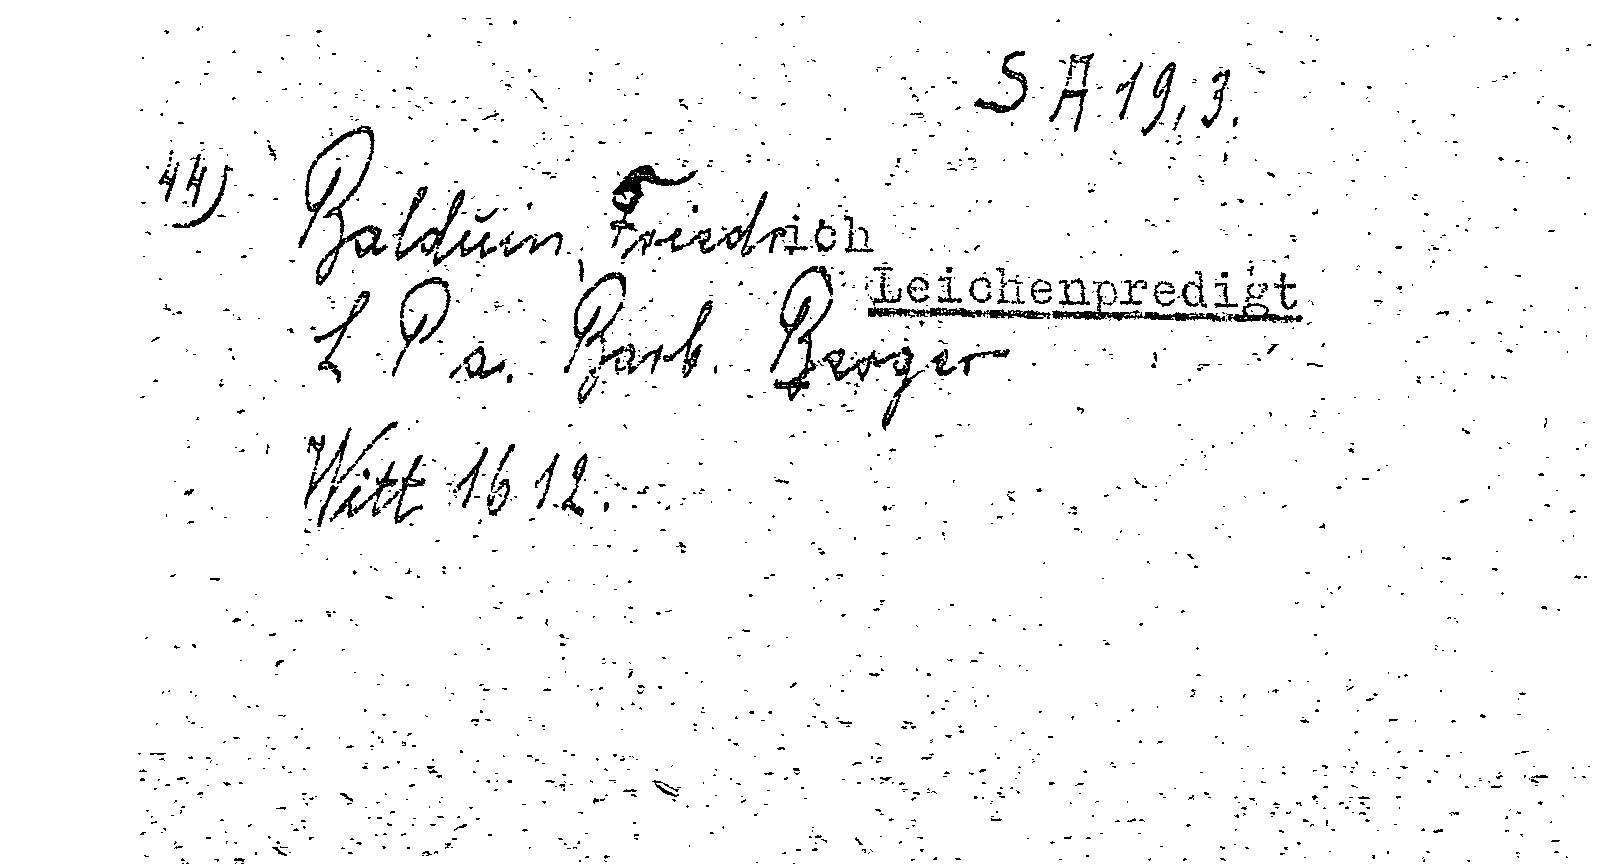 S A 19,3.
44) Balduin, Friedrich
Leichenpredigt
L P a. Barb. Berger
Witt 1612.